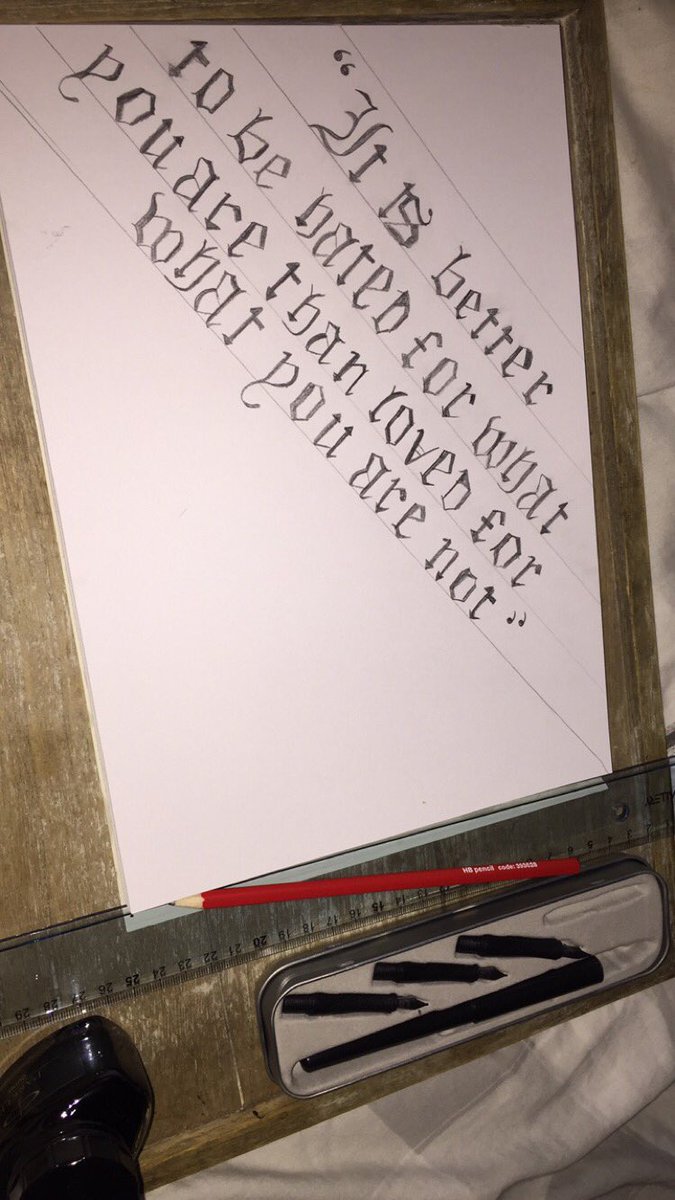 “It is better
to be hated for what
you are than loved for
what you are not”
HB pencil code: 393628
5 6 13 14 16 17 18 19 20 21 22 23 24 25 26 27 28 29